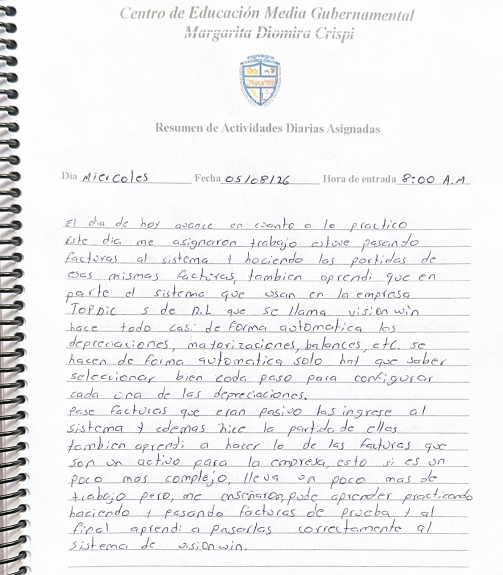 Centro de Educación Media Gubernamental
Margarita Diomira Crispi
Resumen de Actividades Diarias Asignadas
Día Miercoles Fecha 05/08/26 Hora de entrada 8:00 A.M
El dia de hoy avance en cuanto a lo practico
Este dia me asignaron trabajo estuve pasando
facturas al sistema y haciendo las partidas de
esas mismas facturas, tambien aprendi que en
parte el sistema que usan en la empresa
s de R.L que se llama vision win
hace todo casi de forma automatica las
depreciaciones, matorizaciones, balances, etc. se
hacen de forma automatica solo hay que saber
seleccionar bien cada paso para configurar
cada una de las depreciaciones.
Pase facturas que eran pasivo las ingrese al
sistema y ademas hice la partida de ellas
tambien aprendi a hacer lo de las facturas que
son un activo para la empresa, esto si es un
poco mas complejo, lleva un poco mas de
trabajo pero, me enseñaron, pude aprender practicando
haciendo y pasando facturas de prueba y al
final aprendi a pasarlas correctamente al
sistema de visionwin.